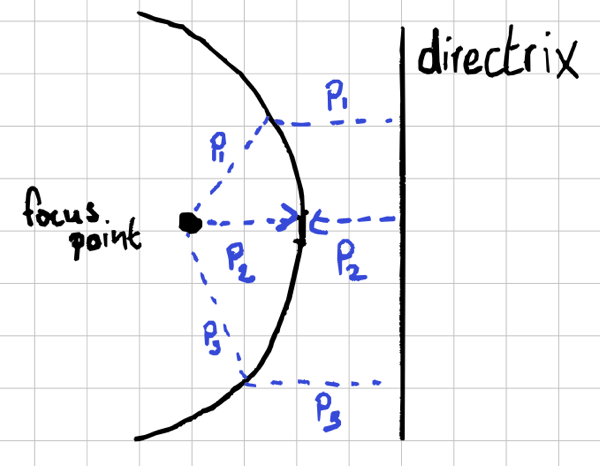 directrix
P1
P1
focus
point
P2
P2
P3
P3